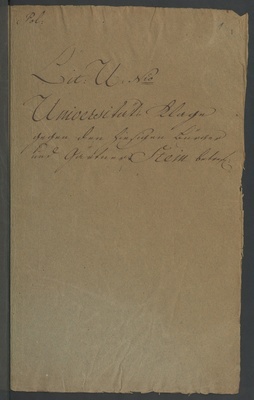 Pol.
Lit. U. No
Universitäts Klage
gegen den hiesigen Bürger
und Gärtner Stein betref.